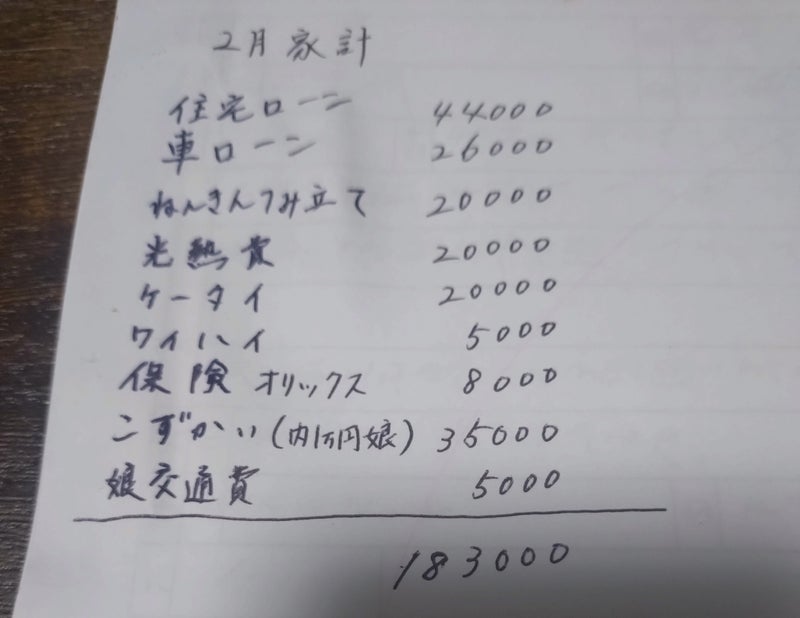 2月家計
住宅ローン 44000
車ローン 26000
ねんきんつみ立て 20000
光熱費 20000
ケータイ 20000
ワイハイ 5000
保険 オリックス 8000
こずかい(内1万円娘) 35000
娘交通費 5000
183000